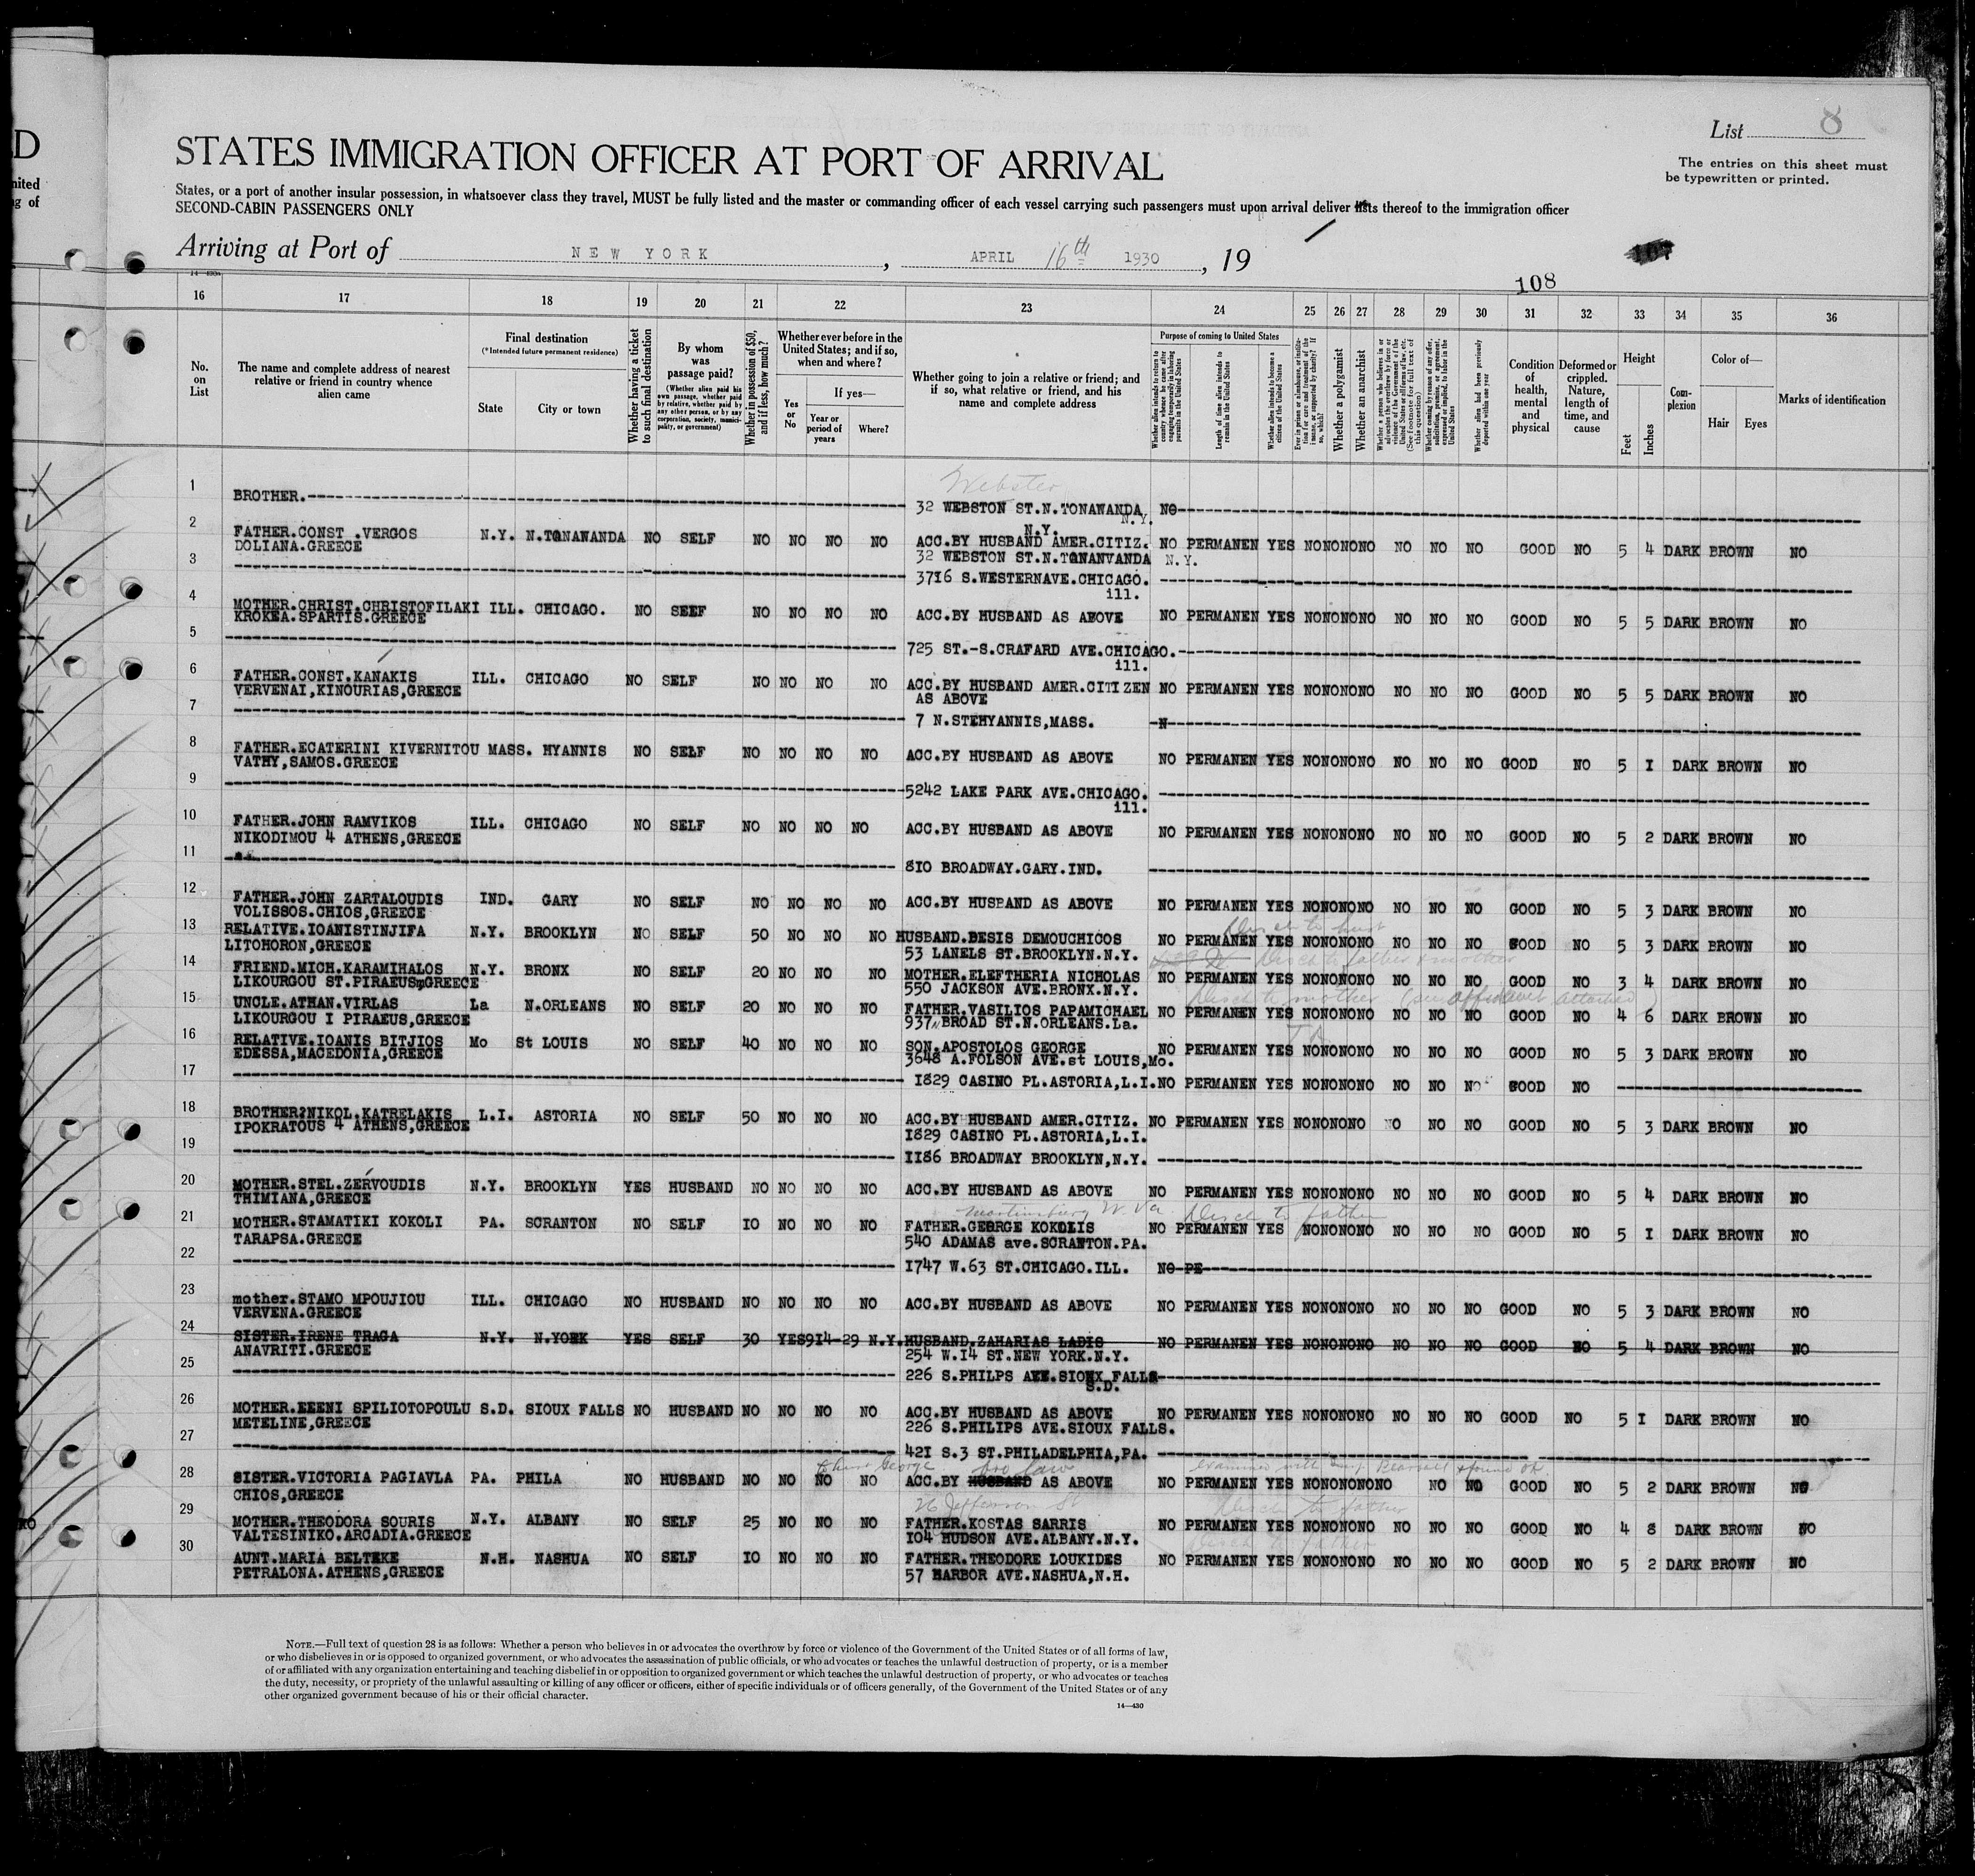 D
nited
ng of
List 8
The entries on this sheet must
be typewritten or printed.
STATES IMMIGRATION OFFICER AT PORT OF ARRIVAL
States, or a port of another insular possession, in whatsoever class they travel, MUST be fully listed and the master or commanding officer of each vessel carrying such passengers must upon arrival deliver lists thereof to the immigration officer
SECOND-CABIN PASSENGERS ONLY
Arriving at Port of NEW YORK, APRIL 16th 1930, 19
108
14-430a
16 17 18 19 20 21 22 23 24 25 26 27 28 29 30 31 32 33 34 35 36
No. on List
The name and complete address of nearest relative or friend in country whence alien came
Final destination
(*Intended future permanent residence)
State
City or town
Whether having a ticket to such final destination
By whom was passage paid?
(Whether alien paid his own passage, whether paid by relative, whether paid by any other person, or by any corporation, society, municipality, or government)
Whether in possession of $50, and if less, how much?
Whether ever before in the United States; and if so, when and where?
Yes or No
If yes—
Year or period of years
Where?
Whether going to join a relative or friend; and if so, what relative or friend, and his name and complete address
Purpose of coming to United States
Whether alien intends to return to country whence he came after engaging temporarily in laboring pursuits in the United States
Length of time alien intends to remain in the United States
Whether alien intends to become a citizen of the United States
Ever in prison or almshouse, or institution for care and treatment of the insane, or supported by charity? If so, which?
Whether a polygamist
Whether an anarchist
Whether a person who believes in or advocates the overthrow by force or violence of the Government of the United States or all forms of law, etc. (See footnote for full text of this question)
Whether coming by reason of any offer, solicitation, promise, or agreement, expressed or implied, to labor in the United States
Whether alien had been previously deported within one year
Condition of health, mental and physical
Deformed or crippled. Nature, length of time, and cause
Height
Feet
Inches
Complexion
Color of—
Hair
Eyes
Marks of identification
Webster
1 BROTHER. 32 WEBSTON ST.N.TONAWANDA N.Y. NO
2 FATHER.CONST .VERGOS N.Y. N.TONAWANDA NO SELF NO NO NO NO ACC.BY HUSBAND AMER.CITIZ. NO PERMANEN YES NONONONO NO NO NO GOOD NO 5 4 DARK BROWN NO
DOLIANA.GREECE 32 WEBSTON ST.N.TONANVANDA N.Y.
3 3716 S.WESTERNAVE.CHICAGO.
ill.
4 MOTHER.CHRIST.CHRISTOFILAKI ILL. CHICAGO. NO SEEF NO NO NO NO ACC.BY HUSBAND AS ABOVE NO PERMANEN YES NONONONO NO NO NO GOOD NO 5 5 DARK BROWN NO
KROKEA.SPARTIS.GREECE
5 725 ST.-S.CRAFARD AVE.CHICAGO.
ill.
6 FATHER.CONST.KANAKIS ILL. CHICAGO NO SELF NO NO NO NO ACC.BY HUSBAND AMER.CITIZEN NO PERMANEN YES NONONONO NO NO NO GOOD NO 5 5 DARK BROWN NO
VERVENAI,KINOURIAS,GREECE AS ABOVE
7 7 N.STEHYANNIS,MASS. N
8 FATHER.ECATERINI KIVERNITOU MASS. HYANNIS NO SELF NO NO NO NO ACC.BY HUSBAND AS ABOVE NO PERMANEN YES NONONONO NO NO NO GOOD NO 5 I DARK BROWN NO
VATHY,SAMOS.GREECE
9 5242 LAKE PARK AVE.CHICAGO.
ill.
10 FATHER.JOHN RAMVIKOS ILL. CHICAGO NO SELF NO NO NO NO ACC.BY HUSBAND AS ABOVE NO PERMANEN YES NONONONO NO NO NO GOOD NO 5 2 DARK BROWN NO
NIKODIMOU 4 ATHENS,GREECE
11 8I0 BROADWAY.GARY.IND.
12 FATHER.JOHN ZARTALOUDIS IND. GARY NO SELF NO NO NO NO ACC.BY HUSBAND AS ABOVE NO PERMANEN YES NONONONO NO NO NO GOOD NO 5 3 DARK BROWN NO
VOLISSOS.CHIOS,GREECE
13 RELATIVE.IOANISTINJIFA N.Y. BROOKLYN NO SELF 50 NO NO NO HUSBAND.BESIS DEMOUCHICOS NO PERMANEN YES NONONONO NO NO NO GOOD NO 5 3 DARK BROWN NO
LITOHORON,GREECE 53 LANELS ST.BROOKLYN.N.Y.
Disch to father & mother
14 FRIEND.MICH.KARAMIHALOS N.Y. BRONX NO SELF 20 NO NO NO MOTHER.ELEFTHERIA NICHOLAS NO PERMANEN YES NONONONO NO NO NO GOOD NO 3 4 DARK BROWN NO
LIKOURGOU ST.PIRAEUS,GREECE 550 JACKSON AVE.BRONX.N.Y.
Disch to mother (see affidavit attached)
15 UNCLE.ATHAN.VIRLAS La N.ORLEANS NO SELF 20 NO NO NO FATHER.VASILIOS PAPAMICHAEL NO PERMANEN YES NONONONO NO NO NO GOOD NO 4 6 DARK BROWN NO
LIKOURGOU I PIRAEUS,GREECE 937 N BROAD ST.N.ORLEANS.La.
16 RELATIVE.IOANIS BITJIOS Mo St LOUIS NO SELF 40 NO NO NO SON.APOSTOLOS GEORGE NO PERMANEN YES NONONONO NO NO NO GOOD NO 5 3 DARK BROWN NO
EDESSA,MACEDONIA,GREECE 3648 A.FOLSON AVE.st LOUIS,Mo.
17 I829 CASINO PL.ASTORIA,L.I. NO PERMANEN YES NONONONO NO NO NO GOOD NO
18 BROTHER?NIKOL.KATRELAKIS L.I. ASTORIA NO SELF 50 NO NO NO ACC.BY HUSBAND AMER.CITIZ. NO PERMANEN YES NONONONO NO NO NO GOOD NO 5 3 DARK BROWN NO
IPOKRATOUS 4 ATHENS,GREECE I829 CASINO PL.ASTORIA,L.I.
19 II86 BROADWAY BROOKLYN,N.Y.
20 MOTHER.STEL.ZERVOUDIS N.Y. BROOKLYN YES HUSBAND NO NO NO NO ACC.BY HUSBAND AS ABOVE NO PERMANEN YES NONONONO NO NO NO GOOD NO 5 4 DARK BROWN NO
THIMIANA,GREECE
Martinsburg W. Va. Disch to father
21 MOTHER.STAMATIKI KOKOLI PA. SCRANTON NO SELF IO NO NO NO FATHER.GEORGE KOKOLIS NO PERMANEN YES NONONONO NO NO NO GOOD NO 5 I DARK BROWN NO
TARAPSA.GREECE 540 ADAMAS ave.SCRANTON.PA.
22 I747 W.63 ST.CHICAGO.ILL. NO PE
23 mother.STAMO MPOUJIOU ILL. CHICAGO NO HUSBAND NO NO NO NO ACC.BY HUSBAND AS ABOVE NO PERMANEN YES NONONONO NO NO NO GOOD NO 5 3 DARK BROWN NO
VERVENA.GREECE
24 SISTER.IRENE TRAGA N.Y. N.YORK YES SELF 30 YES9I4-29 N.Y. HUSBAND.ZAHARIAS LADIS NO PERMANEN YES NONONONO NO NO NO GOOD NO 5 4 DARK BROWN NO
ANAVRITI.GREECE 254 W.I4 ST.NEW YORK.N.Y.
25 226 S.PHILPS AVE.SIOUX FALLS
S.D.
26 MOTHER.EEENI SPILIOTOPOULU S.D. SIOUX FALLS NO HUSBAND NO NO NO NO ACC.BY HUSBAND AS ABOVE NO PERMANEN YES NONONONO NO NO NO GOOD NO 5 I DARK BROWN NO
METELINE,GREECE 226 S.PHILIPS AVE.SIOUX FALLS.
27 42I S.3 ST.PHILADELPHIA,PA.
George bro law
28 SISTER.VICTORIA PAGIAVLA PA. PHILA NO HUSBAND NO NO NO NO ACC.BY HUSBAND AS ABOVE NO PERMANEN YES NONONONO NO NO GOOD NO 5 2 DARK BROWN NO
CHIOS,GREECE
26 Jefferson St Disch to father
29 MOTHER.THEODORA SOURIS N.Y. ALBANY NO SELF 25 NO NO NO FATHER.KOSTAS SARRIS NO PERMANEN YES NONONONO NO NO NO GOOD NO 4 8 DARK BROWN NO
VALTESINIKO.ARCADIA.GREECE I04 HUDSON AVE.ALBANY.N.Y.
Disch to father
30 AUNT.MARIA BELTEKE N.H. NASHUA NO SELF IO NO NO NO FATHER.THEODORE LOUKIDES NO PERMANEN YES NONONONO NO NO NO GOOD NO 5 2 DARK BROWN NO
PETRALONA.ATHENS,GREECE 57 HARBOR AVE.NASHUA,N.H.
NOTE.—Full text of question 28 is as follows: Whether a person who believes in or advocates the overthrow by force or violence of the Government of the United States or of all forms of law,
or who disbelieves in or is opposed to organized government, or who advocates the assassination of public officials, or who advocates or teaches the unlawful destruction of property, or is a member
of or affiliated with any organization entertaining and teaching disbelief in or opposition to organized government or which teaches the unlawful destruction of property, or who advocates or teaches
the duty, necessity, or propriety of the unlawful assaulting or killing of any officer or officers, either of specific individuals or of officers generally, of the Government of the United States or of any
other organized government because of his or their official character.
14—430